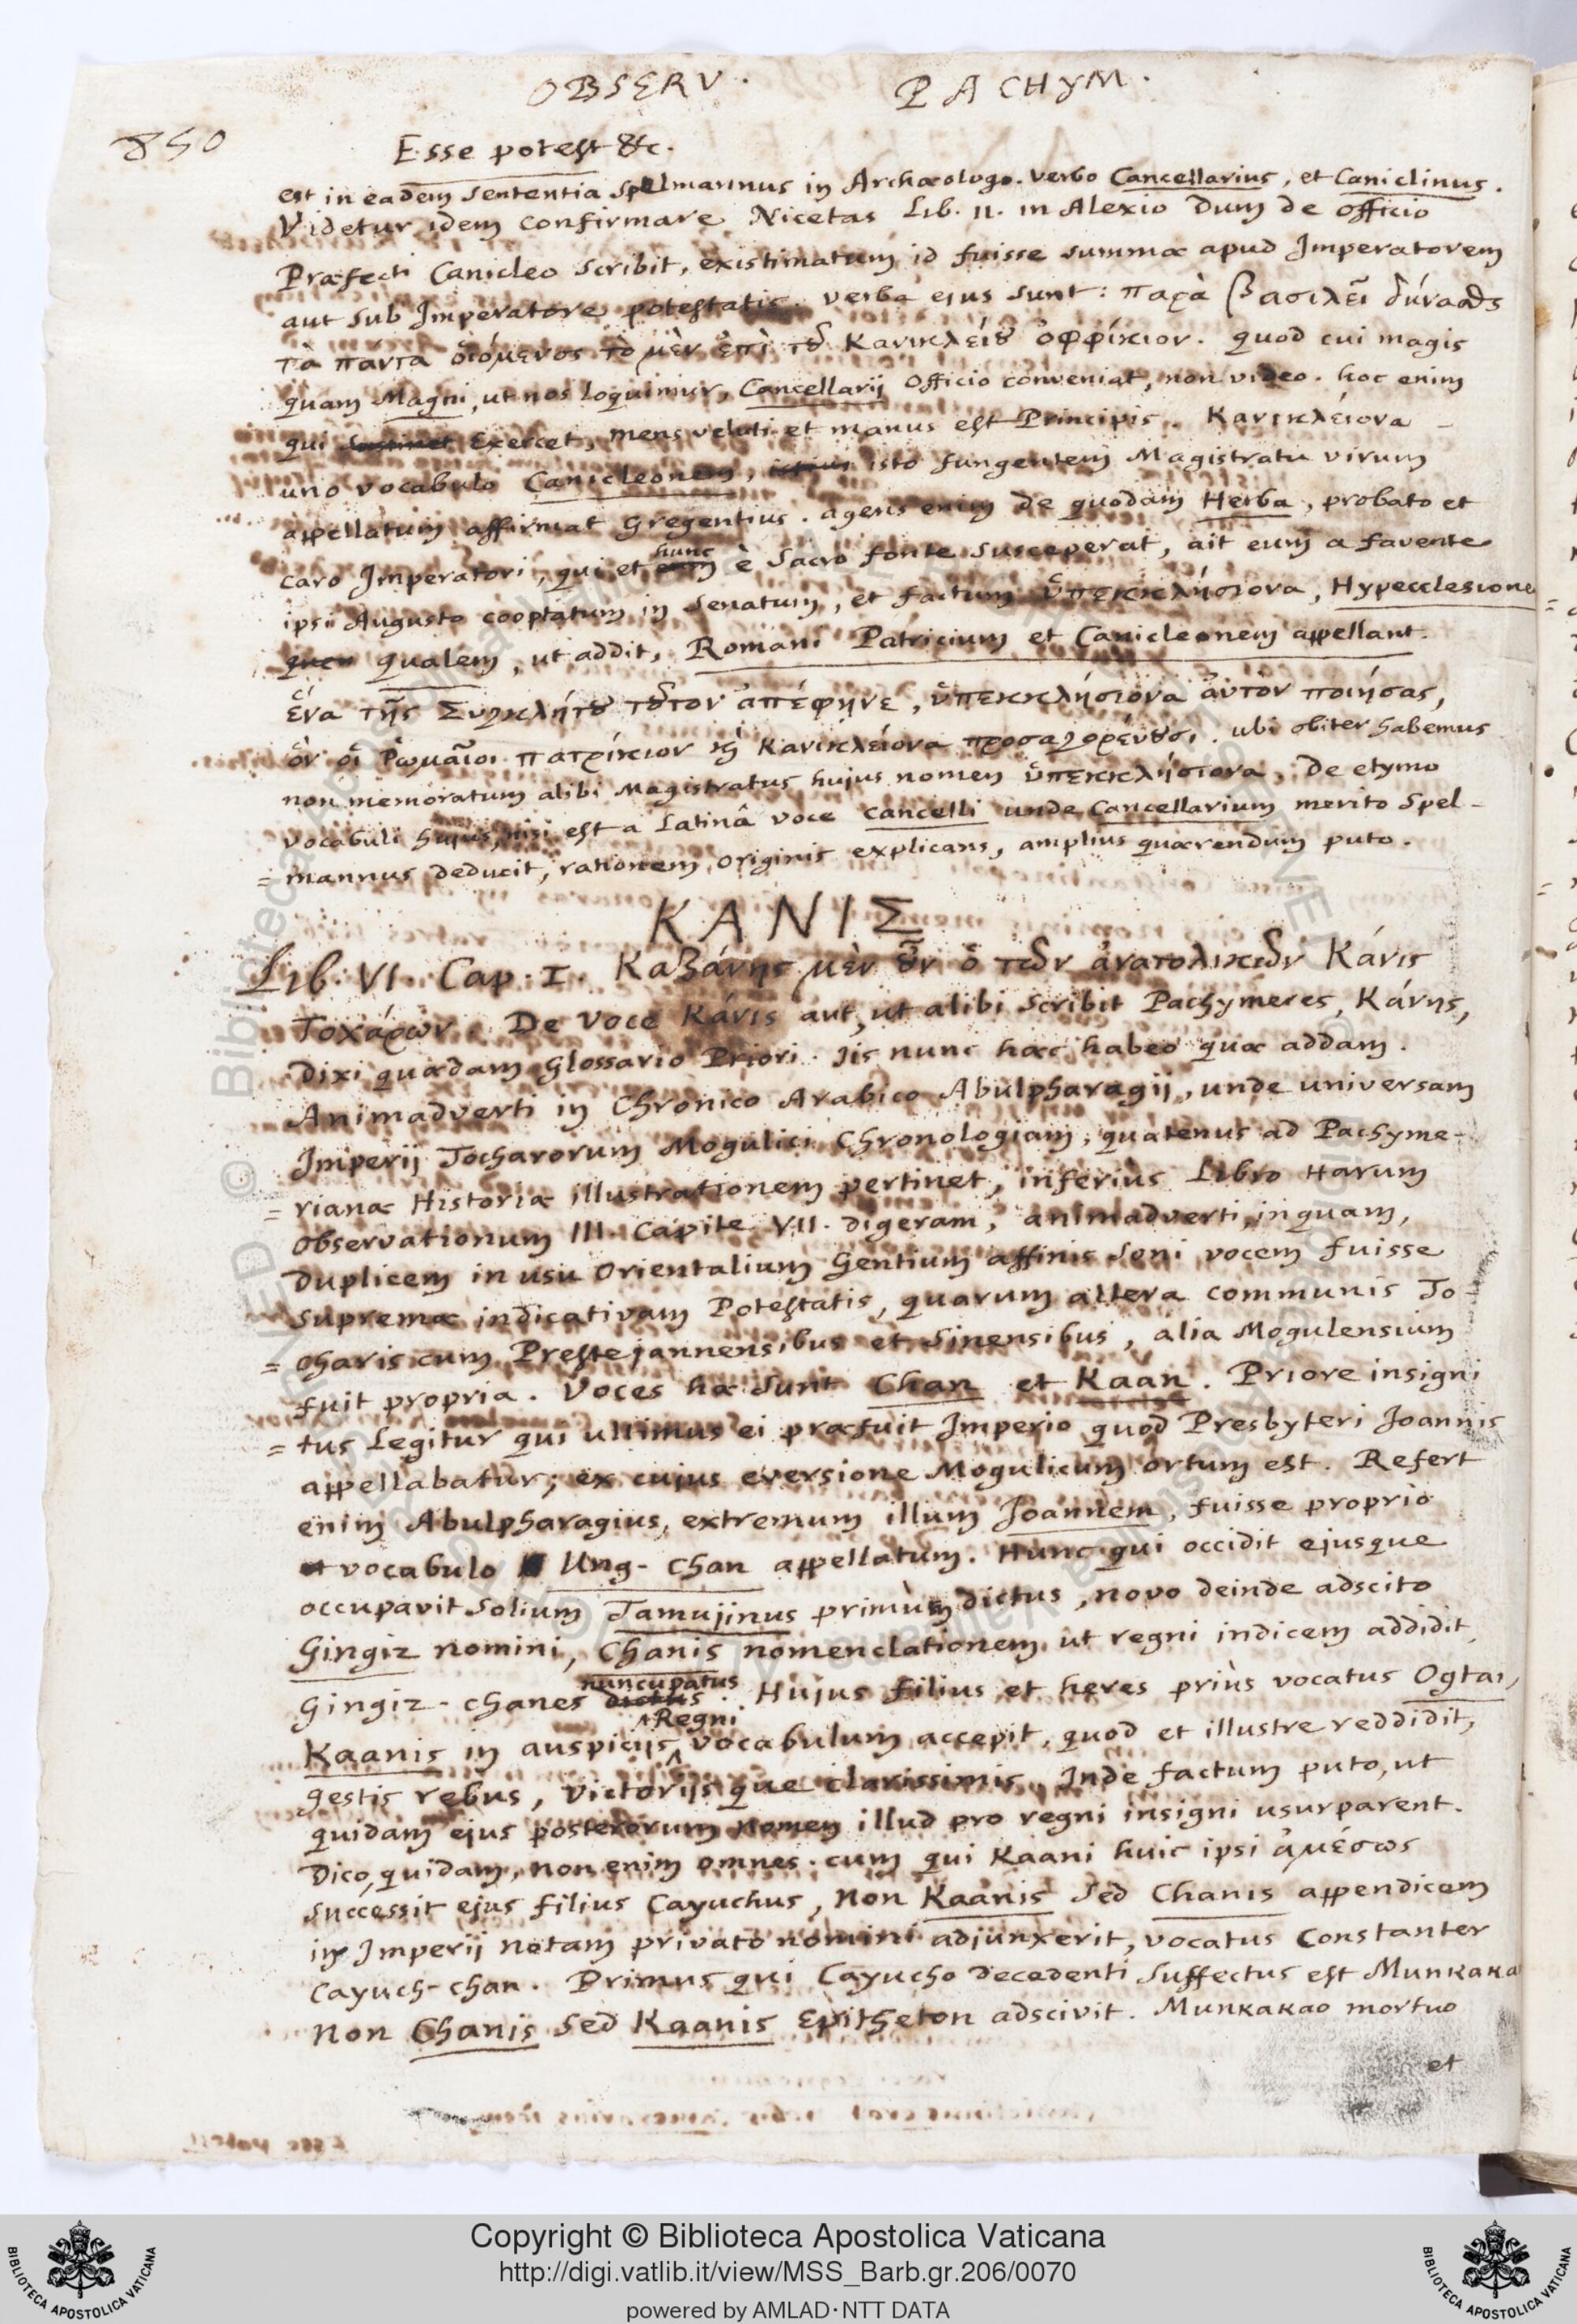 OBSERV. PACHYM.
850
Esse potest &c.
est in eadem sententia Spelmannus in Archæologo. verbo Cancellarius, et Caniclinus.
Videtur idem confirmare Nicetas Lib. II. in Alexio dum de officio
Præfecti Canicleo scribit, existimatum id fuisse summæ apud Imperatorem
aut sub Imperatore potestatis. verba ejus sunt: παρὰ βασιλεῖ
τὰ παντα οἰόμενος τὸ μὲν ἐπὶ τȣ Κανικλείȣ ὀφφίκιον. quod cui magis
quam Magni, ut nos loquimur, Cancellarij officio conveniat, non video. hoc enim
qui exercet, mens veluti et manus est Principis. Κανικλείονα
uno vocabulo Canicleonem, isto fungentem Magistratu virum
appellatum affirmat Gregentius. agens enim de quodam Herba, probato et
caro Imperatori, qui et hunc è sacro fonte susceperat, ait eum a favente
ipsi Augusto cooptatum in senatum, et factum ὑπεκκλήσιονα, Hypecclesione
qualem, ut addit, Romani Patricium et Canicleonem appellant.
ἕνα τῆς Συγκλήτȣ τȣτον ἀπέφηνε, ὑπεκκλήσιονα ἀυτὸν ποιήσας,
ὃν οἱ Ῥωμαῖοι πατρίκιον κὴ Κανικλείονα προσαγορέυȣσι. ubi obiter habemus
non memoratum alibi Magistratus hujus nomen ὑπεκκλήσιονα, De etymo
vocabuli hujus, nisi est a Latinâ voce cancelli unde Cancellarium merito Spel-
= mannus deducit, rationem originis explicans, amplius quærendum puto.
ΚΑΝΙΣ
Lib. VI. Cap. I. Καζάνης μὲν ȣ̃ν ὁ τῶν ἀνατολικῶν Κάνις
Τοχάρων. De voce Κάνις aut, ut alibi scribit Pachymeres, Κάνης,
dixi quædam Glossario Priori. Iis nunc hæc habeo quæ addam.
Animadverti in Chronico Arabico Abulpharagij, unde universam
Imperij Tocharorum Mogulici Chronologiam, quatenus ad Pachyme-
= rianæ Historiæ illustrationem pertinet, inferiùs Libro Harum
Observationum III. Capite VII. digeram, animadverti, inquam,
duplicem in usu Orientalium Gentium affinis soni vocem fuisse
supremæ indicativam Potestatis, quarum altera communis To-
= charis cum Prestejannensibus et Sinensibus, alia Mogulensium
fuit propria. Voces hæ sunt Chan et Kaan. Priore insigni
= tus legitur qui ultimus ei præfuit Imperio quod Presbyteri Joannis
appellabatur; ex cujus eversione Mogulicum ortum est. Refert
enim Abulpharagius, extremum illum Joannem, fuisse proprio
vocabulo Ung-Chan appellatum. Hunc qui occidit ejusque
occupavit solium Tamujinus primùm dictus, novo deinde adscito
Gingiz nomini, Chanis nomenclationem ut regni indicem addidit,
Gingiz-chanes nuncupatus. Hujus filius et heres priùs vocatus Ogtai,
Kaanis in auspicijs Regni vocabulum accepit, quod et illustre reddidit,
gestis rebus, victorijsque clarissimis. Inde factum puto, ut
quidam ejus posterorum nomen illud pro regni insigni usurparent.
Dico, quidam, non enim omnes. cum qui Kaani huic ipsi ἀμέσως
successit ejus filius Cayuchus, non Kaanis sed Chanis appendicem
in Imperij notam privato nomini adjunxerit, vocatus constanter
Cayuch-chan. Primus qui Cayucho decedenti suffectus est Munkaka
non Chanis sed Kaanis epitheton adscivit. Munkakao mortuo
et
Copyright © Biblioteca Apostolica Vaticana
http://digi.vatlib.it/view/MSS_Barb.gr.206/0070
powered by AMLAD·NTT DATA
BIBLIOTECA APOSTOLICA VATICANA
BIBLIOTECA APOSTOLICA VATICANA